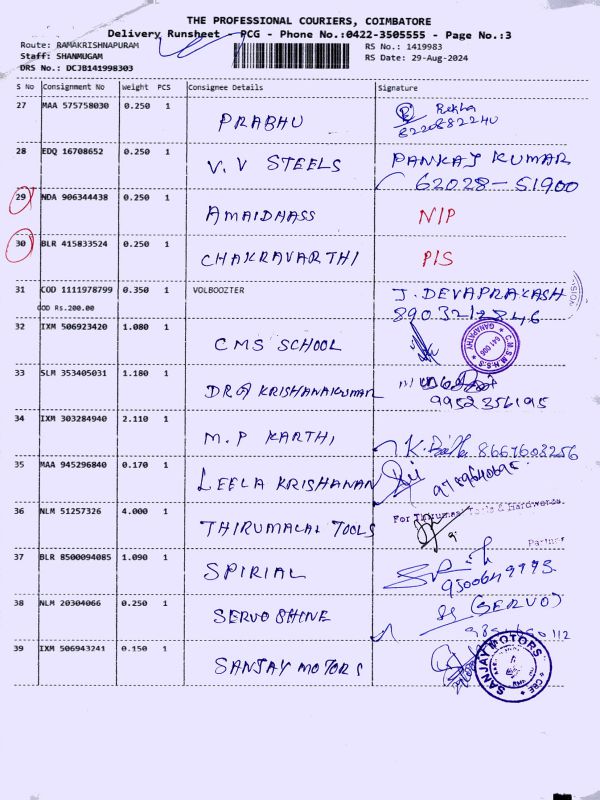 THE PROFESSIONAL COURIERS, COIMBATORE
Delivery Runsheet - PCG - Phone No.:0422-3505555 - Page No.:3
Route: RAMAKRISHNAPURAM RS No.: 1419983
Staff: SHANMUGAM RS Date: 29-Aug-2024
DRS No.: DCJB141998303
S No Consignment No Weight PCS Consignee Details Signature
27 MAA 575758030 0.250 1 PRABHU Rekha
8220882240
28 EDQ 16708652 0.250 1 V. V STEELS PANKAJ KUMAR
62028-51900
29 NDA 906344438 0.250 1 AMAIDHASS N/P
30 BLR 415833524 0.250 1 CHAKRAVARTHI P/S
31 COD 1111978799 0.350 1 VOLBOOZTER J. DEVAPRAKASH
COD Rs.200.00 8903212846
32 IXM 506923420 1.080 1 CMS SCHOOL
C.M.S.M.H.S.S GANAPATHY 641 006
33 SLM 353405031 1.180 1 DR G KRISHANAKUMAR
9952356195
34 IXM 303284940 2.110 1 M. P KARTHI K. 8667608256
35 MAA 945296840 0.170 1 LEELA KRISHANAN 9789640695
36 NLM 51257326 4.000 1 THIRUMALAI TOOLS For Tools & Hardwares.
Partner
37 BLR 8500094085 1.090 1 SPIRIAL
38 NLM 20304066 0.250 1 SERVO SHINE (SERVO)
39 IXM 506943241 0.150 1 SANJAY MOTORS SANJAY MOTORS CBE